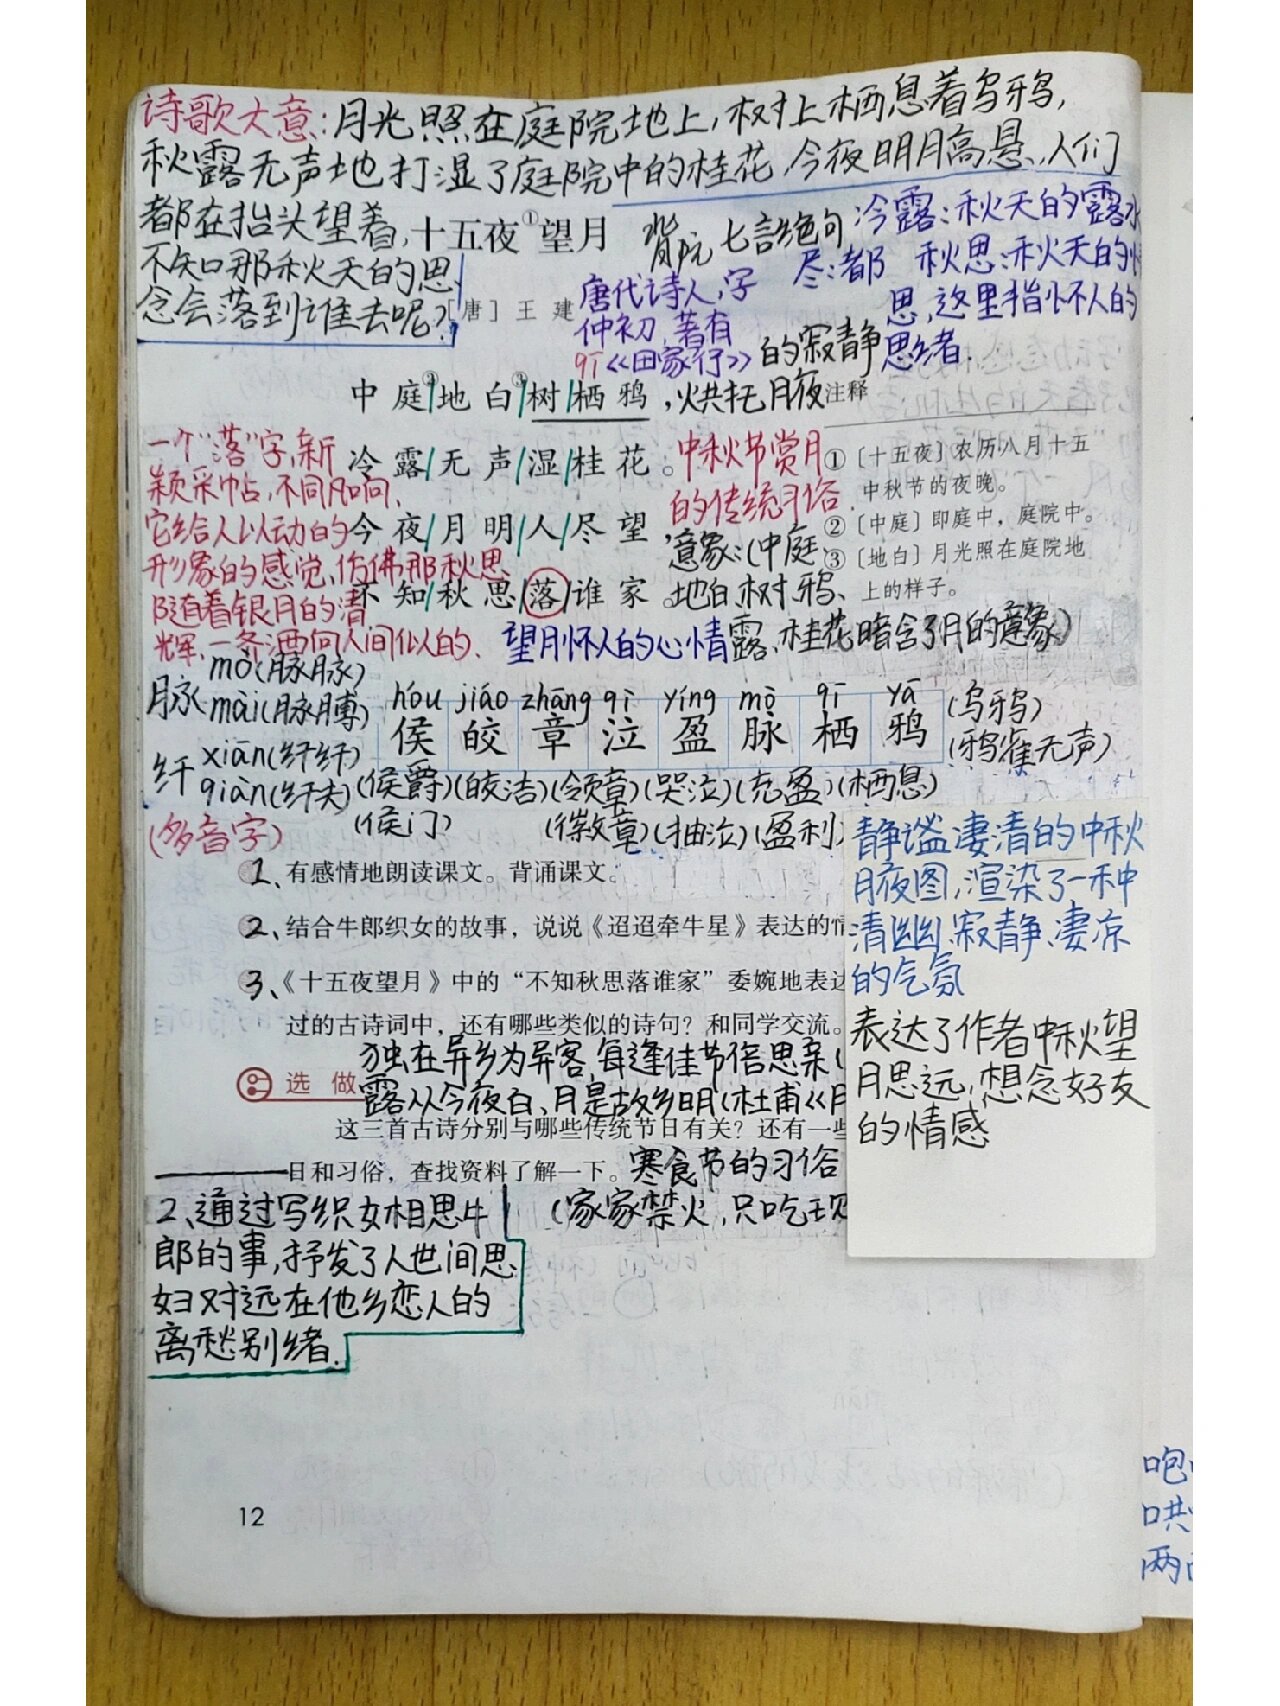 诗歌大意:月光照在庭院地上,树上栖息着乌鸦,
秋露无声地打湿了庭院中的桂花,今夜明月高悬,人们
都在抬头望着,
不知那秋天的思
念会落到谁去呢?
十五夜①望月
背诵 七言绝句
冷露:秋天的露水
尽:都 秋思:秋天的情
思,这里指怀人的
思绪.
[唐] 王 建
唐代诗人,字
仲初,著有
《田家行》
中庭②地白③树栖鸦,
烘托月夜
的寂静
冷露无声湿桂花。
今夜月明人尽望,
不知秋思落谁家。
中秋节赏月
的传统习俗.
一个“落”字,新
颖采帖,不同凡响,
它给人以动的
形象的感觉,仿佛那秋思
随着银月的清
辉,一条洒向人间似的、
望月怀人的心情
意象:(中庭
地白、树、鸦、
露、桂花暗含了月的意象)
注释
①〔十五夜〕农历八月十五
中秋节的夜晚。
②〔中庭〕即庭中,庭院中。
③〔地白〕月光照在庭院地
上的样子。
脉 mò(脉脉)
mài(脉膊)
纤 xiān(纤纤)
qiàn(纤夫)
(多音字)
hóu jiǎo zhāng qì yíng mò qī yā
侯 皎 章 泣 盈 脉 栖 鸦
(乌鸦)
(鸦雀无声)
(侯爵)(皎洁)(领章)(哭泣)(充盈)(栖息)
(侯门) (徽章)(抽泣)(盈利)
1、有感情地朗读课文。背诵课文。
2、结合牛郎织女的故事,说说《迢迢牵牛星》表达的情
3、《十五夜望月》中的“不知秋思落谁家”委婉地表达
过的古诗词中,还有哪些类似的诗句?和同学交流。
独在异乡为异客,每逢佳节倍思亲(
露从今夜白、月是故乡明(杜甫《月
选 做
这三首古诗分别与哪些传统节日有关?还有一些
日和习俗,查找资料了解一下。
寒食节的习俗
(家家禁火,只吃现
静谧凄清的中秋
月夜图,渲染了一种
清幽、寂静、凄凉
的气氛
表达了作者中秋望
月思远,想念好友
的情感
2、通过写织女相思牛
郎的事,抒发了人世间思
妇对远在他乡恋人的
离愁别绪.
12
两